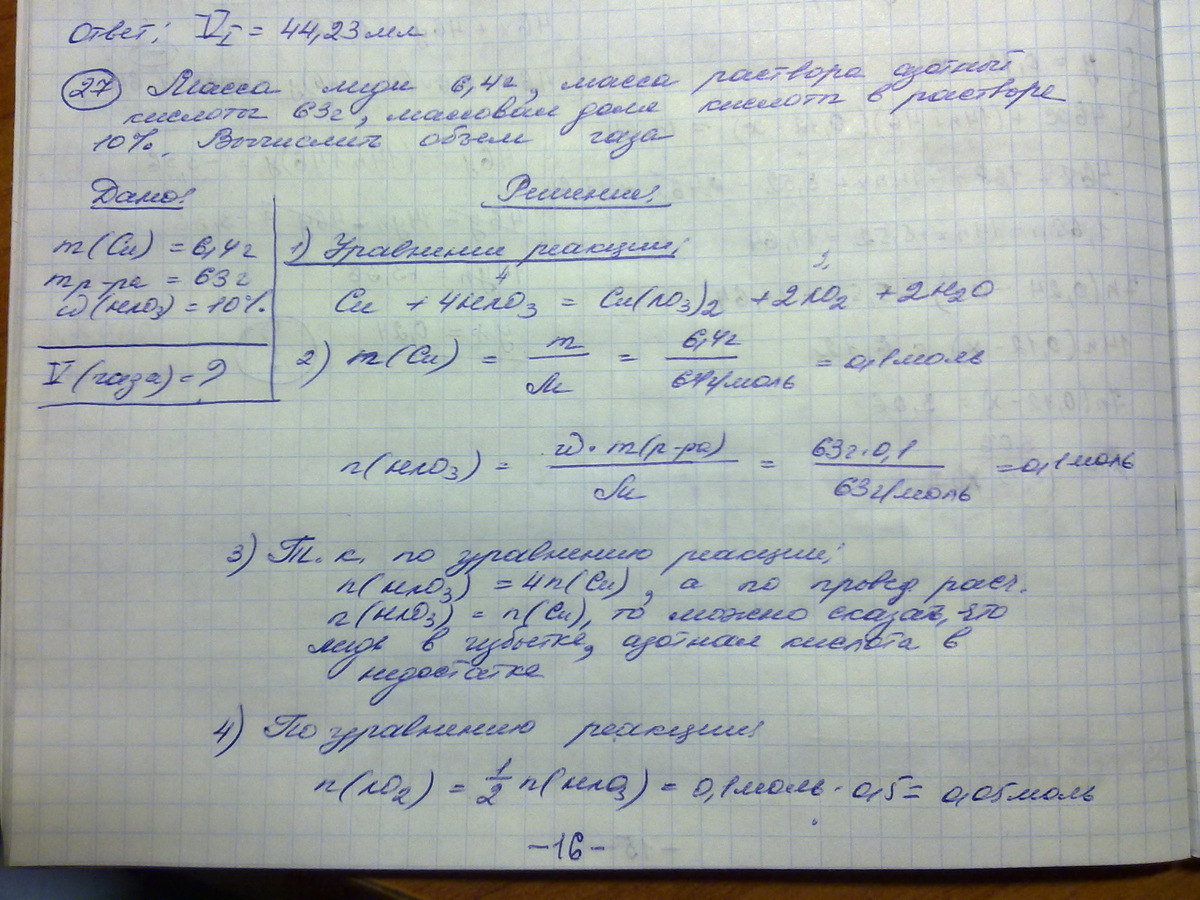 Ответ: V₁ = 44,23 мл
27 Масса меди 6,4г, масса раствора азотный
кислоты 63г, массовая доля кислоты в растворе
10%. Вычислить объем газа
Дано: Решение:
m(Cu) = 6,4г 1) Уравнение реакции:
mр-ра = 63г
ω(HNO₃) = 10% Cu + 4HNO₃ = Cu(NO₃)₂ + 2NO₂ + 2H₂O
V(газа) = ? 2) n(Cu) = m/M = 6,4г/64г/моль = 0,1моль
n(HNO₃) = ω·m(р-ра)/M = 63г·0,1/63г/моль = 0,1моль
3) Т.к. по уравнению реакции:
n(HNO₃) = 4n(Cu), а по провед. расч.
n(HNO₃) = n(Cu), то можно сказать, что
медь в избытке, азотная кислота в
недостатке
4) По уравнению реакции:
n(NO₂) = 1/2 n(HNO₃) = 0,1моль · 0,5 = 0,05моль
-16-